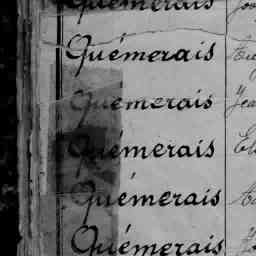 Quémerais
Quémerais
Quemerais
Quémerais
Quémerais
Quémerais